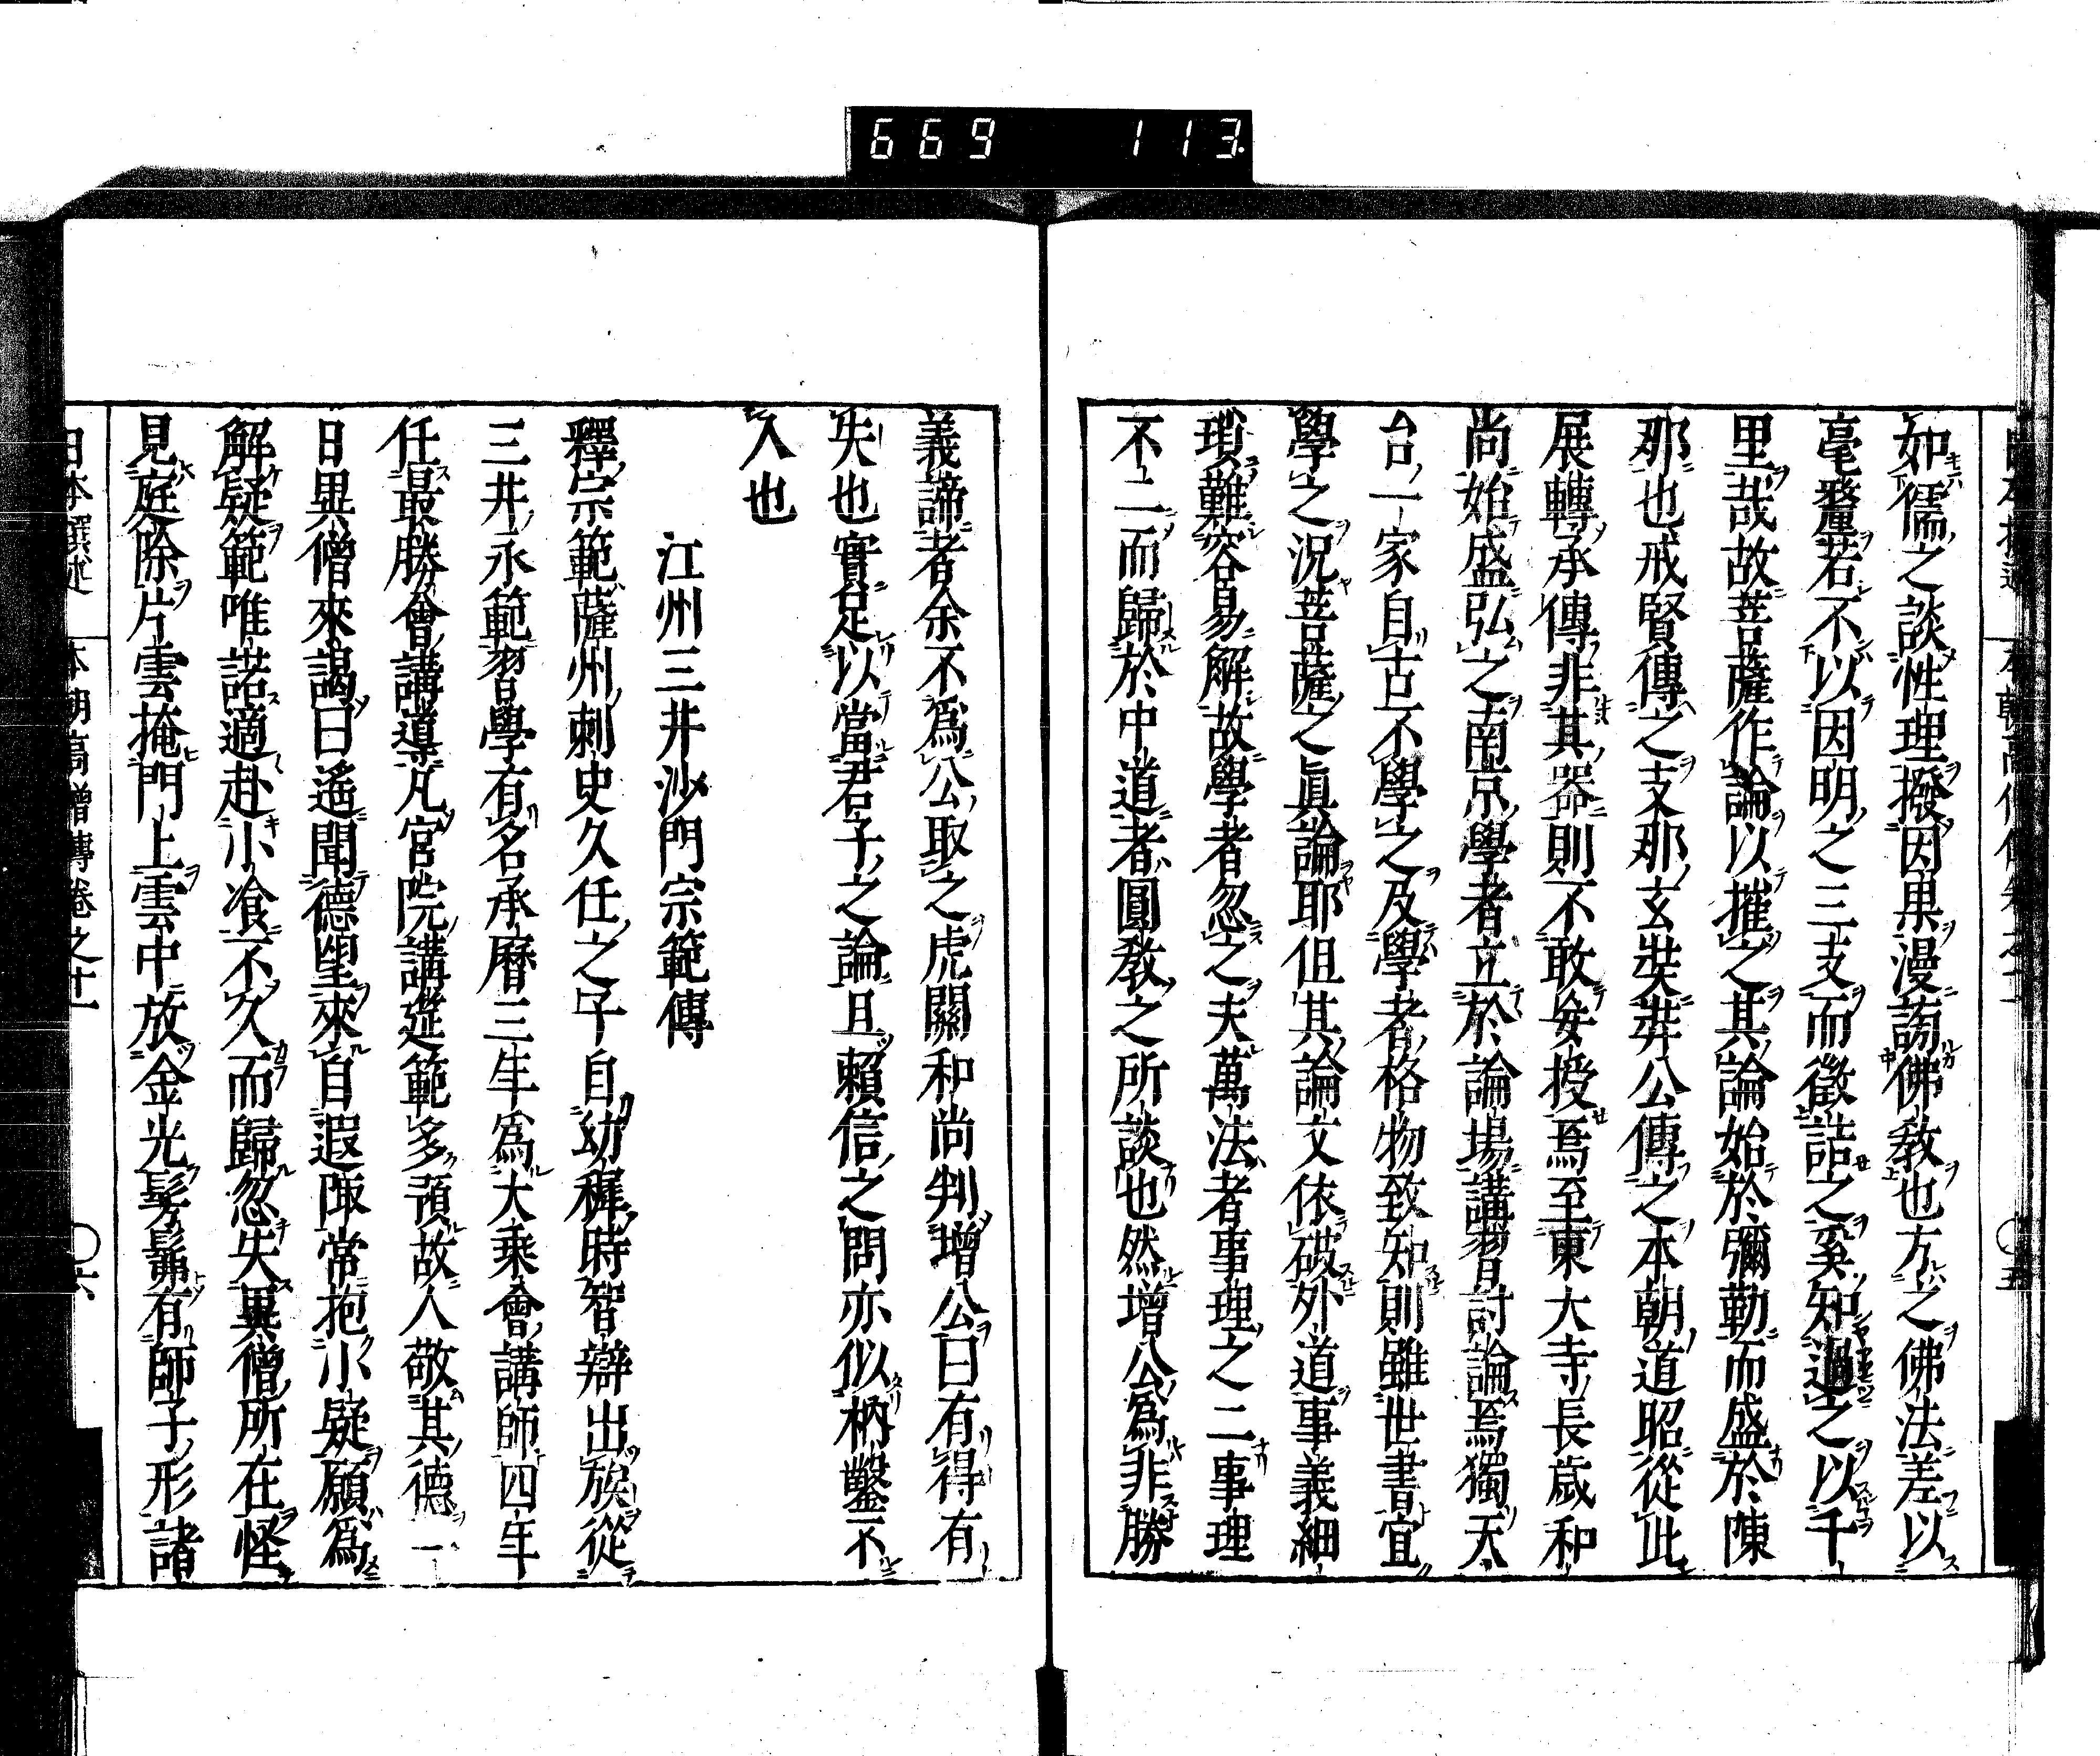 669 113
如儒之談性理撥因果漫謗佛敎也方之佛法差以
毫釐若不以因明之三支而徵詰之奚知過之以千
里哉故菩薩作論以摧之其論始於彌勒而盛於陳
那也戒賢傳之支那玄奘奘公傳之本朝道昭從此
展轉承傳非其器則不敢妄授焉至東大寺長歲和
尚始盛弘之南京學者立於論場講習討論焉獨天
台一家自古不學之及學者格物致知則雖世書宜
學之況菩薩之眞論耶但其論文依破外道事義細
瑣難容易解故學者忽之夫萬法者事理之二事理
不二而歸於中道者圓敎之所談也然增公爲非勝
義諦者余不爲公取之虎關和尚判增公曰有得有
失也實足以當君子之論且賴信之問亦似枘鑿不
入也
江州三井沙門宗範傳
釋宗範薩州刺史久任之子自幼穉時智辯出族從
三井永範習學有名承曆三年爲大乘會講師四年
任最勝會講導凡宮院講莚範多預故人敬其德一
日異僧來謁曰遙聞德望來自遐陬常抱小疑願爲
解疑範唯諾適赴小飡不久而歸忽失異僧所在怪
見庭除片雲掩門上雲中放金光髣髴有師子形諸
日本撰述 本朝高僧傳卷之十一 〇六